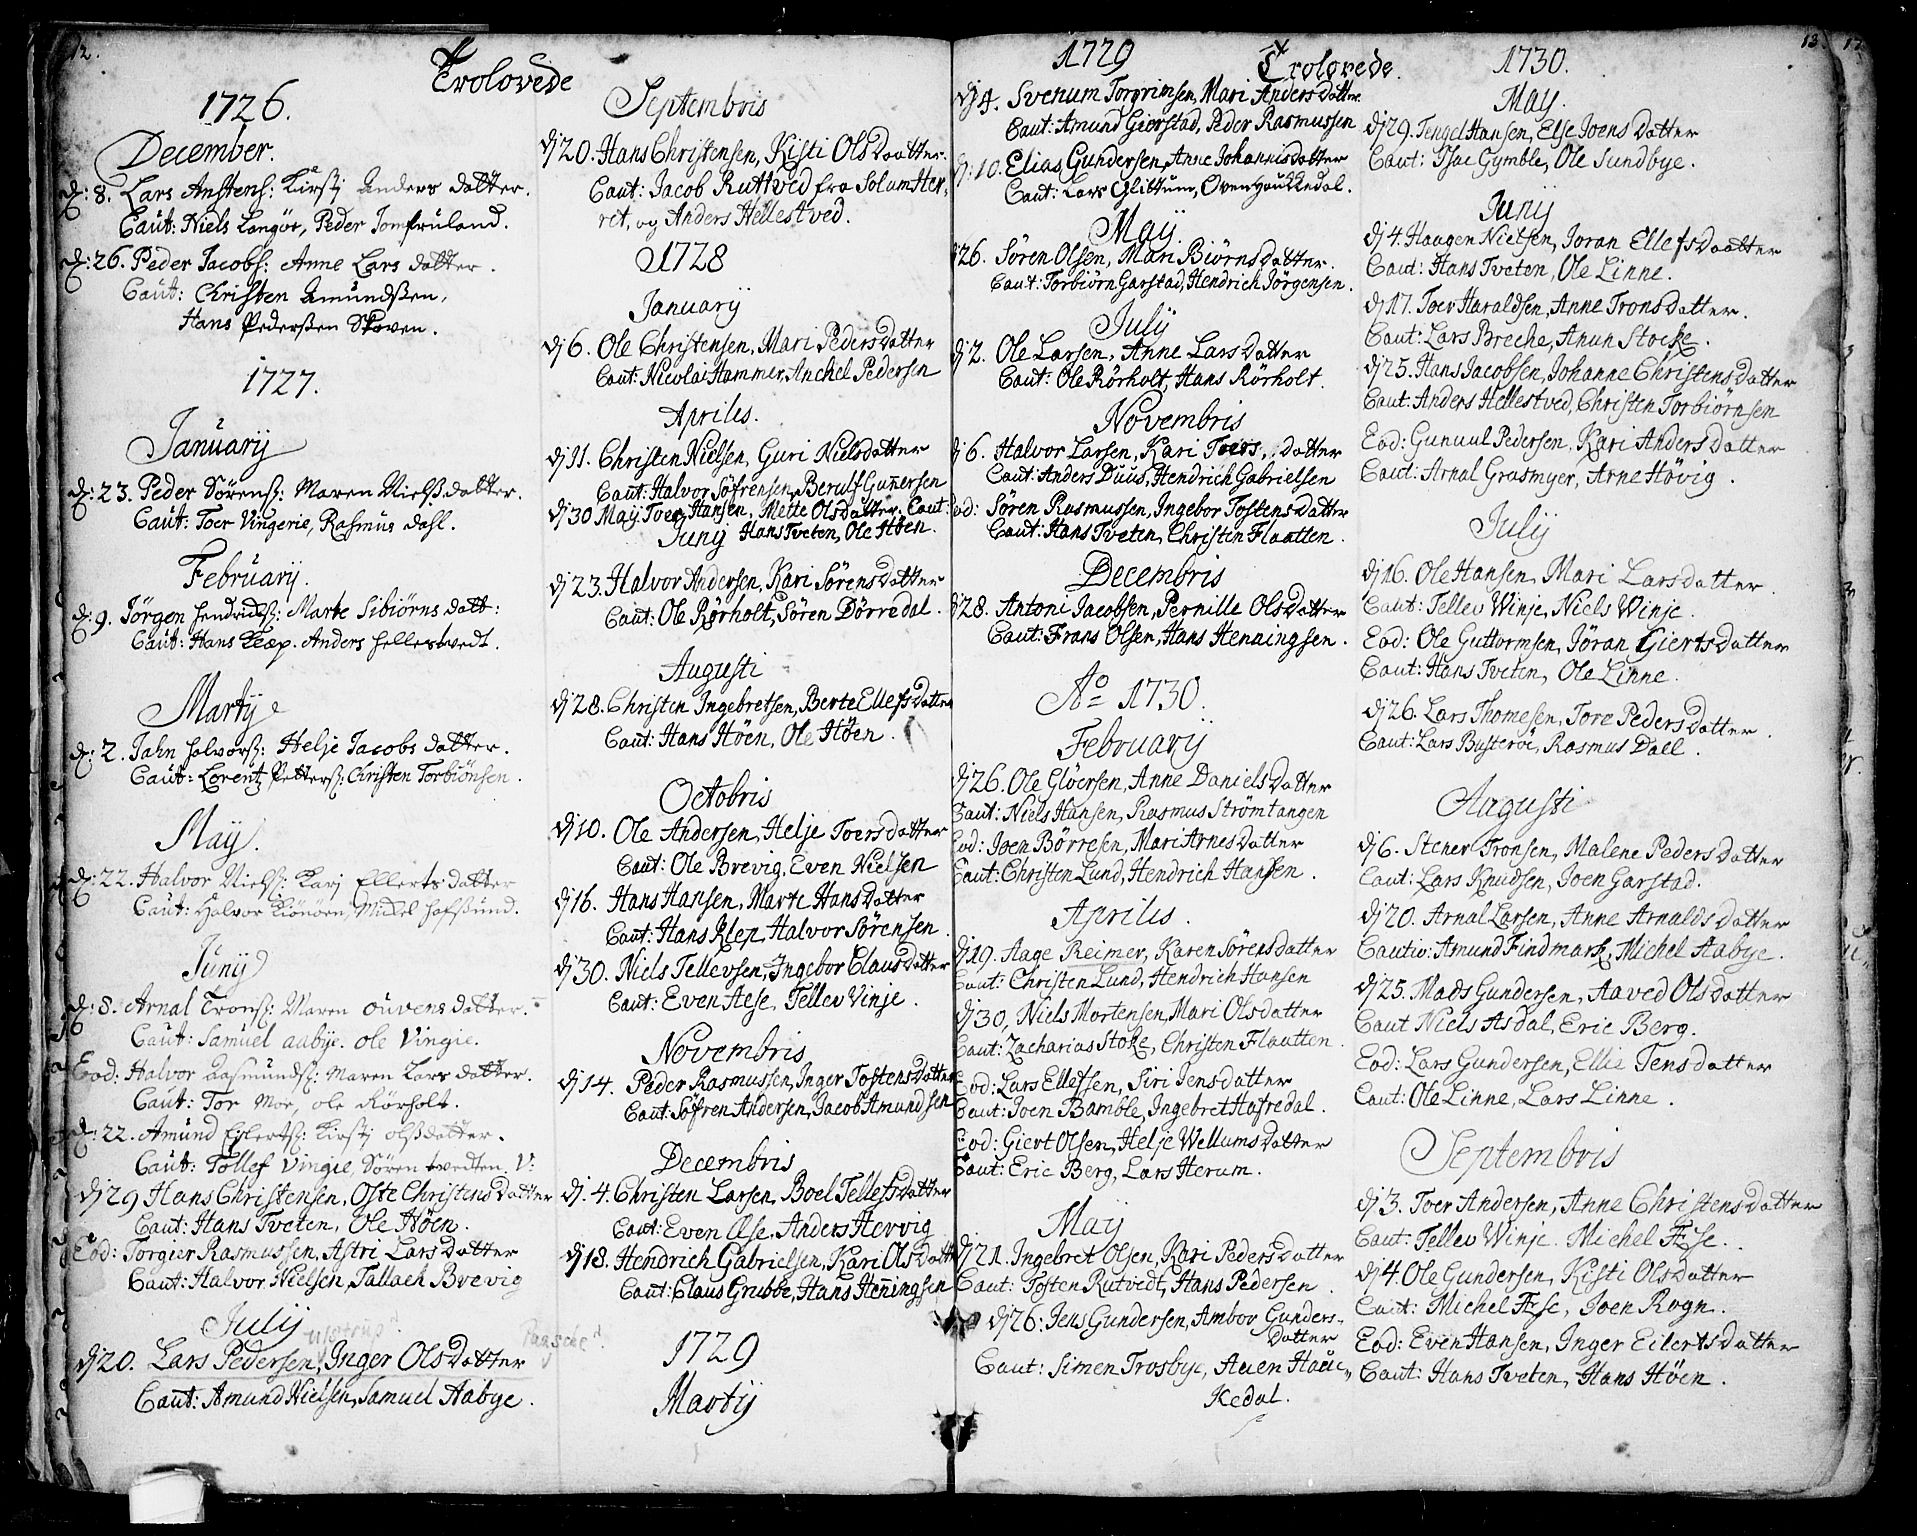 12.
Trolovede
1726.
December.
d: 8. Lars Anstens: Kirstj Anders datter.
Caut: Niels Langöe, Peder Jomfruland.
d: 26. Peder Jacobs: Anne Lars datter.
Caut: Christen Amundßen,
Hans Pederßen Skoven.
1727.
Januarij
d: 23. Peder Sörens: Maren Nielsdatter.
Caut: Toer Vingerie, Rasmus dahl.
Februarij.
d: 9. Jörgen Hendrichs: Marte Sibiörns datt:
Caut: Hans Klep. Anders Hellestvedt.
Martij
d: 2. Jahn Halvors: Helje Jacobs datter.
Caut: Lorentz Petters: Christen Torbiönsen.
Maij.
d: 22. Halvor Niels: Karj Ellerts datter
Caut: Halvor Kiönöen, Mickel Hafsund.
Junij
d: 8. Arnal Trons: Maren Ouvens datter.
Caut: Samuel aabye. ole Vingie.
Eod: Halvor Aasmunds: Maren Lars datter.
Caut: Tor Moe, ole Rörholt.
d: 22. Amund Eylerts: Kirstj olsdatter.
Caut: Tollef Vingie, Sören tvedten. V:
dj 29 Hans Christensen, Oste Christens Datter
Caut: Hans Tveten, Ole Höen.
Eod: Torgier Rasmussen, Astri Lars Datter
Caut: Halvor Nielsen, Tallaek Brevig
Julij
Ulstrup
dj 20. Lars Pedersen, Inger Ols Datter
Caut: Amund Nielsen, Samuel Aabye.
Septembris
dj 20. Hans Christensen, Kisti Ols Daatter.
Caut: Jacob Ruttved fra Solum Her-
ret, og Anders Hellestved.
1728
Januarij
dj 6. Ole Christensen, Mari Peders Datter
Caut: Nicolai Hammer, Anchel Pedersen
Aprilis.
dj 11. Christen Nielsen, Guri Nielsdatter
Caut: Halvor Söfrensen, Berulf Gunersen
dj 30 Maij Toer Hansen, Mette Olsdatter. Caut:
Junij Hans Tveten, Ole Höen.
dj 23. Halvor Andersen, Kari Sörens Datter
Caut: Ole Rörholt, Sören Dörredal.
Augusti
dj 28. Christen Ingebretsen, Berte Ellefs Datter
Caut: Hans Höen, Ole Höen.
Octobris
dj 10. Ole Andersen, Helje Toersdatter
Caut: Ole Brevig, Even Nielsen
dj 16. Hans Hansen, Marte Hans Datter
Caut: Hans Klep, Halvor Sörensen
dj 30. Niels Tellevsen, Ingebor Claus Datter
Caut: Even Aese, Tellev Vinje.
Novembris
dj 14. Peder Rasmussen, Inger Tostens Datter
Caut: Söfren Andersen, Jacob Amundsen
Decembris
dj. 4. Christen Larsen, Boel Tellefs Datter
Caut: Even Æse, Anders Hervig
dj 18. Hendrich Gabrielsen, Kari Ols Datt
Caut: Claus Grubbe, Hans Heningsen
1729
Martij
1729
Trolovede.
1730.
13.
dj 4. Svenum Torgrimsen, Mari Anders Datter.
Caut: Amund Gierstad, Peder Rasmussen
dj. 10. Elias Gundersen, Anne Johannis datter
Caut: Lars Glittum, Oven Houkkedal.
Maij.
26. Sören Olsen, Mari Biörns Datter.
Caut: Torbiörn Garstad, Hendrich Jörgensen.
Julij
dj 2. Ole Larsen, Anne Lars Datter
Caut: Ole Rörholt, Hans Rörholt.
Novembris
dj 6. Halvor Larsen, Kari Toers, Datter
Caut: Anders Duus, Hendrich Gabrielsen
Eod: Sören Rasmussen, Ingebor Tostens Datter
Caut: Hans Tveten, Christen Flaatten.
Decembris
28. Antoni Jacobsen, Pernille Ols Datter
Caut: Frans Olsen, Hans Henningsen.
Ao 1730.
Februarij
dj 26. Ole Glöersen, Anne Daniels Datter
Caut: Niels Hansen, Rasmus Strömtangen
Eod: Joen Börresen, Mari Arnes Datter
Caut: Christen Lund, Hendrich Hansen.
Aprilis.
dj 19. Aage Reimer, Karen Sörens Datter
Caut: Christen Lund, Hendrich Hansen
dj 30, Niels Mortensen, Mari Olsdatter
Caut: Zacharias Stoke, Christen Flaatten.
Eod: Lars Ellefsen, Siri Jens Datter
Caut: Joen Bamble, Ingebret Hafredal.
Eod: Giert Olsen, Helje Wellums Datter
Caut: Eric Berg, Lars Herum.
Maij
dj 21. Ingebret Olsen, Kari Peders Datter
Caut: Tosten Rutvedt, Hans Pedersen
dj 26. Jens Gundersen, Ambor Gunders-
Datter
Caut: Simen Trosbye, Auen Hauc-
Kedal.
May.
dj 29. Tengel Hansen, Else Joens Datter
Caut: Isac Gymble, Ole Sundbye.
Junij
dj 4. Haagen Nielsen, Joran Ellefs Daatter
Caut: Hans Tveten, Ole Linne.
dj 17. Toer Haraldsen, Anne Trons Datter.
Caut: Lars Breche, Anun Stocke.
dj 25. Hans Jacobsen, Johanne Christens Datter
Caut: Anders Hellestved, Christen Torbiörnsen
Eod: Gunuul Pedersen, Kari Anders Datter
Caut: Arnal Grasmyer, Arne Hövig.
Julij
dj 16. Ole Hansen, Mari Larsdatter.
Caut: Tellev Winje, Niels Winje.
Eod: Ole Guttormsen, Jöran Gierts Datter
Caut: Hans Tveten, Ole Linne.
dj 26. Lars Thomesen, Tore Peders Datter.
Caut: Lars Busteröe, Rasmus Dall.
Augusti
dj 6. Stener Tronsen, Malene Peders Datter
Caut: Lars Knudsen, Joen Garstad.
dj 20. Arnal Larsen, Anne Arnalds Datter
Cautiv: Amund Findmark, Michel Aabye.
dj 25. Mads Gundersen, Aaved Ols Datter
Caut Niels Asdal, Eric Berg.
Eod: Lars Gundersen, Ellie Jens Datter
Caut: Ole Linne, Lars Linne.
Septembris
dj 3. Toer Andersen, Anne Christens Datter
Caut: Tellev Winje. Michel Æse.
dj 4. Ole Gundersen, Kisti Ols Datter
Caut: Michel Æse, Joen Rogn.
Eod: Even Hansen, Inger Eilerts Datter
Caut: Hans Tveten, Hans Höen.